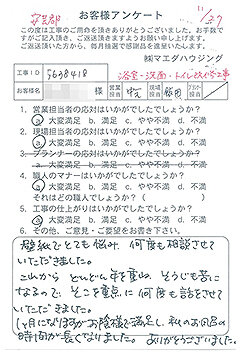 安芸郡
お客様アンケート
11/27
この度は工事のご用命を頂きありがとうございました。お手数で
すがご記入頂き、ご返送頂きますようお願い申し上げます。
ご返送頂いた方から、毎月抽選で感謝品を進呈いたします。
㈱マエダハウジング
工事ID 5698418
浴室・洗面・トイレ改修工事
お客様名 様 営業担当 現場担当 プランナー担当
1. 営業担当者の応対はいかがでしたでしょうか？
a 大変満足 b. 満足 c. やや不満 d. 不満
2. 現場担当者の応対はいかがでしたでしょうか？
a 大変満足 b. 満足 c. やや不満 d. 不満
3. プランナーの応対はいかがでしたでしょうか？
a. 大変満足 b. 満足 c. やや不満 d. 不満
4. 職人のマナーはいかがでしたでしょうか？
a 大変満足 b. 満足 c. やや不満 d. 不満
それはどの職人でしょうか（ ）
5. 工事の仕上がりはいかがでしたでしょうか？
a 大変満足 b. 満足 c. やや不満 d. 不満
6. その他、ご意見・ご要望をお書き下さい。
壁紙でとても悩み、何度も相談させて
いただきました。
これから どんどん年を重ね、そうじも苦に
なるので、そこを重点に何度も話をさせて
いただきました。
1ヶ月になりますがお陰様で満足し、私のお風呂の
時間が長くなりました。ありがとうございました。